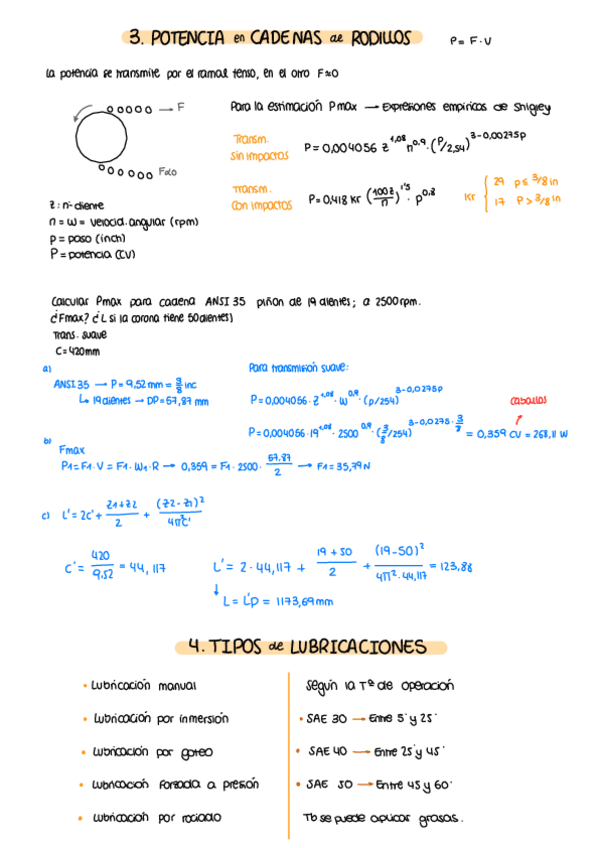 3. POTENCIA en CADENAS de RODILLOS P = F · V
La potencia se transmite por el ramal tenso, en el otro F≈0
F
F≈0
Para la estimación Pmax → Expresiones empíricas de Shigley
Transm. sin impactos P = 0,004056 z^1,08 n^0,9 · (P/2,54)^3-0,00275p
Transm. con impactos P = 0,418 Kr (100z/n)^1'5 · p^0,8 Kr { 29 p ≤ 3/8 in
17 P > 3/8 in
z : nº diente
n = ω = velocid. angular (rpm)
p = paso (inch)
P = potencia (CV)
Calcular Pmax para cadena ANSI 35 piñon de 19 dientes; a 2500 rpm.
¿Fmax? ¿L si la corona tiene 50 dientes?
Trans. suave
C = 420 mm
a)
ANSI 35 → P = 9,52 mm = 3/8 inc
↳ 19 dientes → DP = 57,87 mm
Para transmisión suave:
P = 0,004056 · Z^1,08 · W^0,9 · (p/254)^3-0,0275p
caballos
P = 0,004056 · 19^1,08 · 2500^0,9 · (3/8/254)^3-0,0275·3/8 = 0,359 CV = 268,11 W
b)
Fmax
P1 = F1 · V = F1 · W1 · R → 0,359 = F1 · 2500 · 57.87/2 → F1 = 35,79 N
c) L' = 2C' + Z1+Z2/2 + (Z2-Z1)^2/4π^2C'
C' = 420/9,52 = 44,117
L' = 2 · 44,117 + 19+50/2 + (19-50)^2/4π^2·44,117 = 123,88
↓
L = L'p = 1173,69 mm
4. TIPOS de LUBRICACIONES
• Lubricación manual
• Lubricación por inmersión
• Lubricación por goteo
• Lubricación forzada a presión
• Lubricación por rociado
Según la Tª de operación
• SAE 30 → Entre 5º y 25º
• SAE 40 → Entre 25º y 45º
• SAE 50 → Entre 45 y 60º
Tb se puede aplicar grasas.